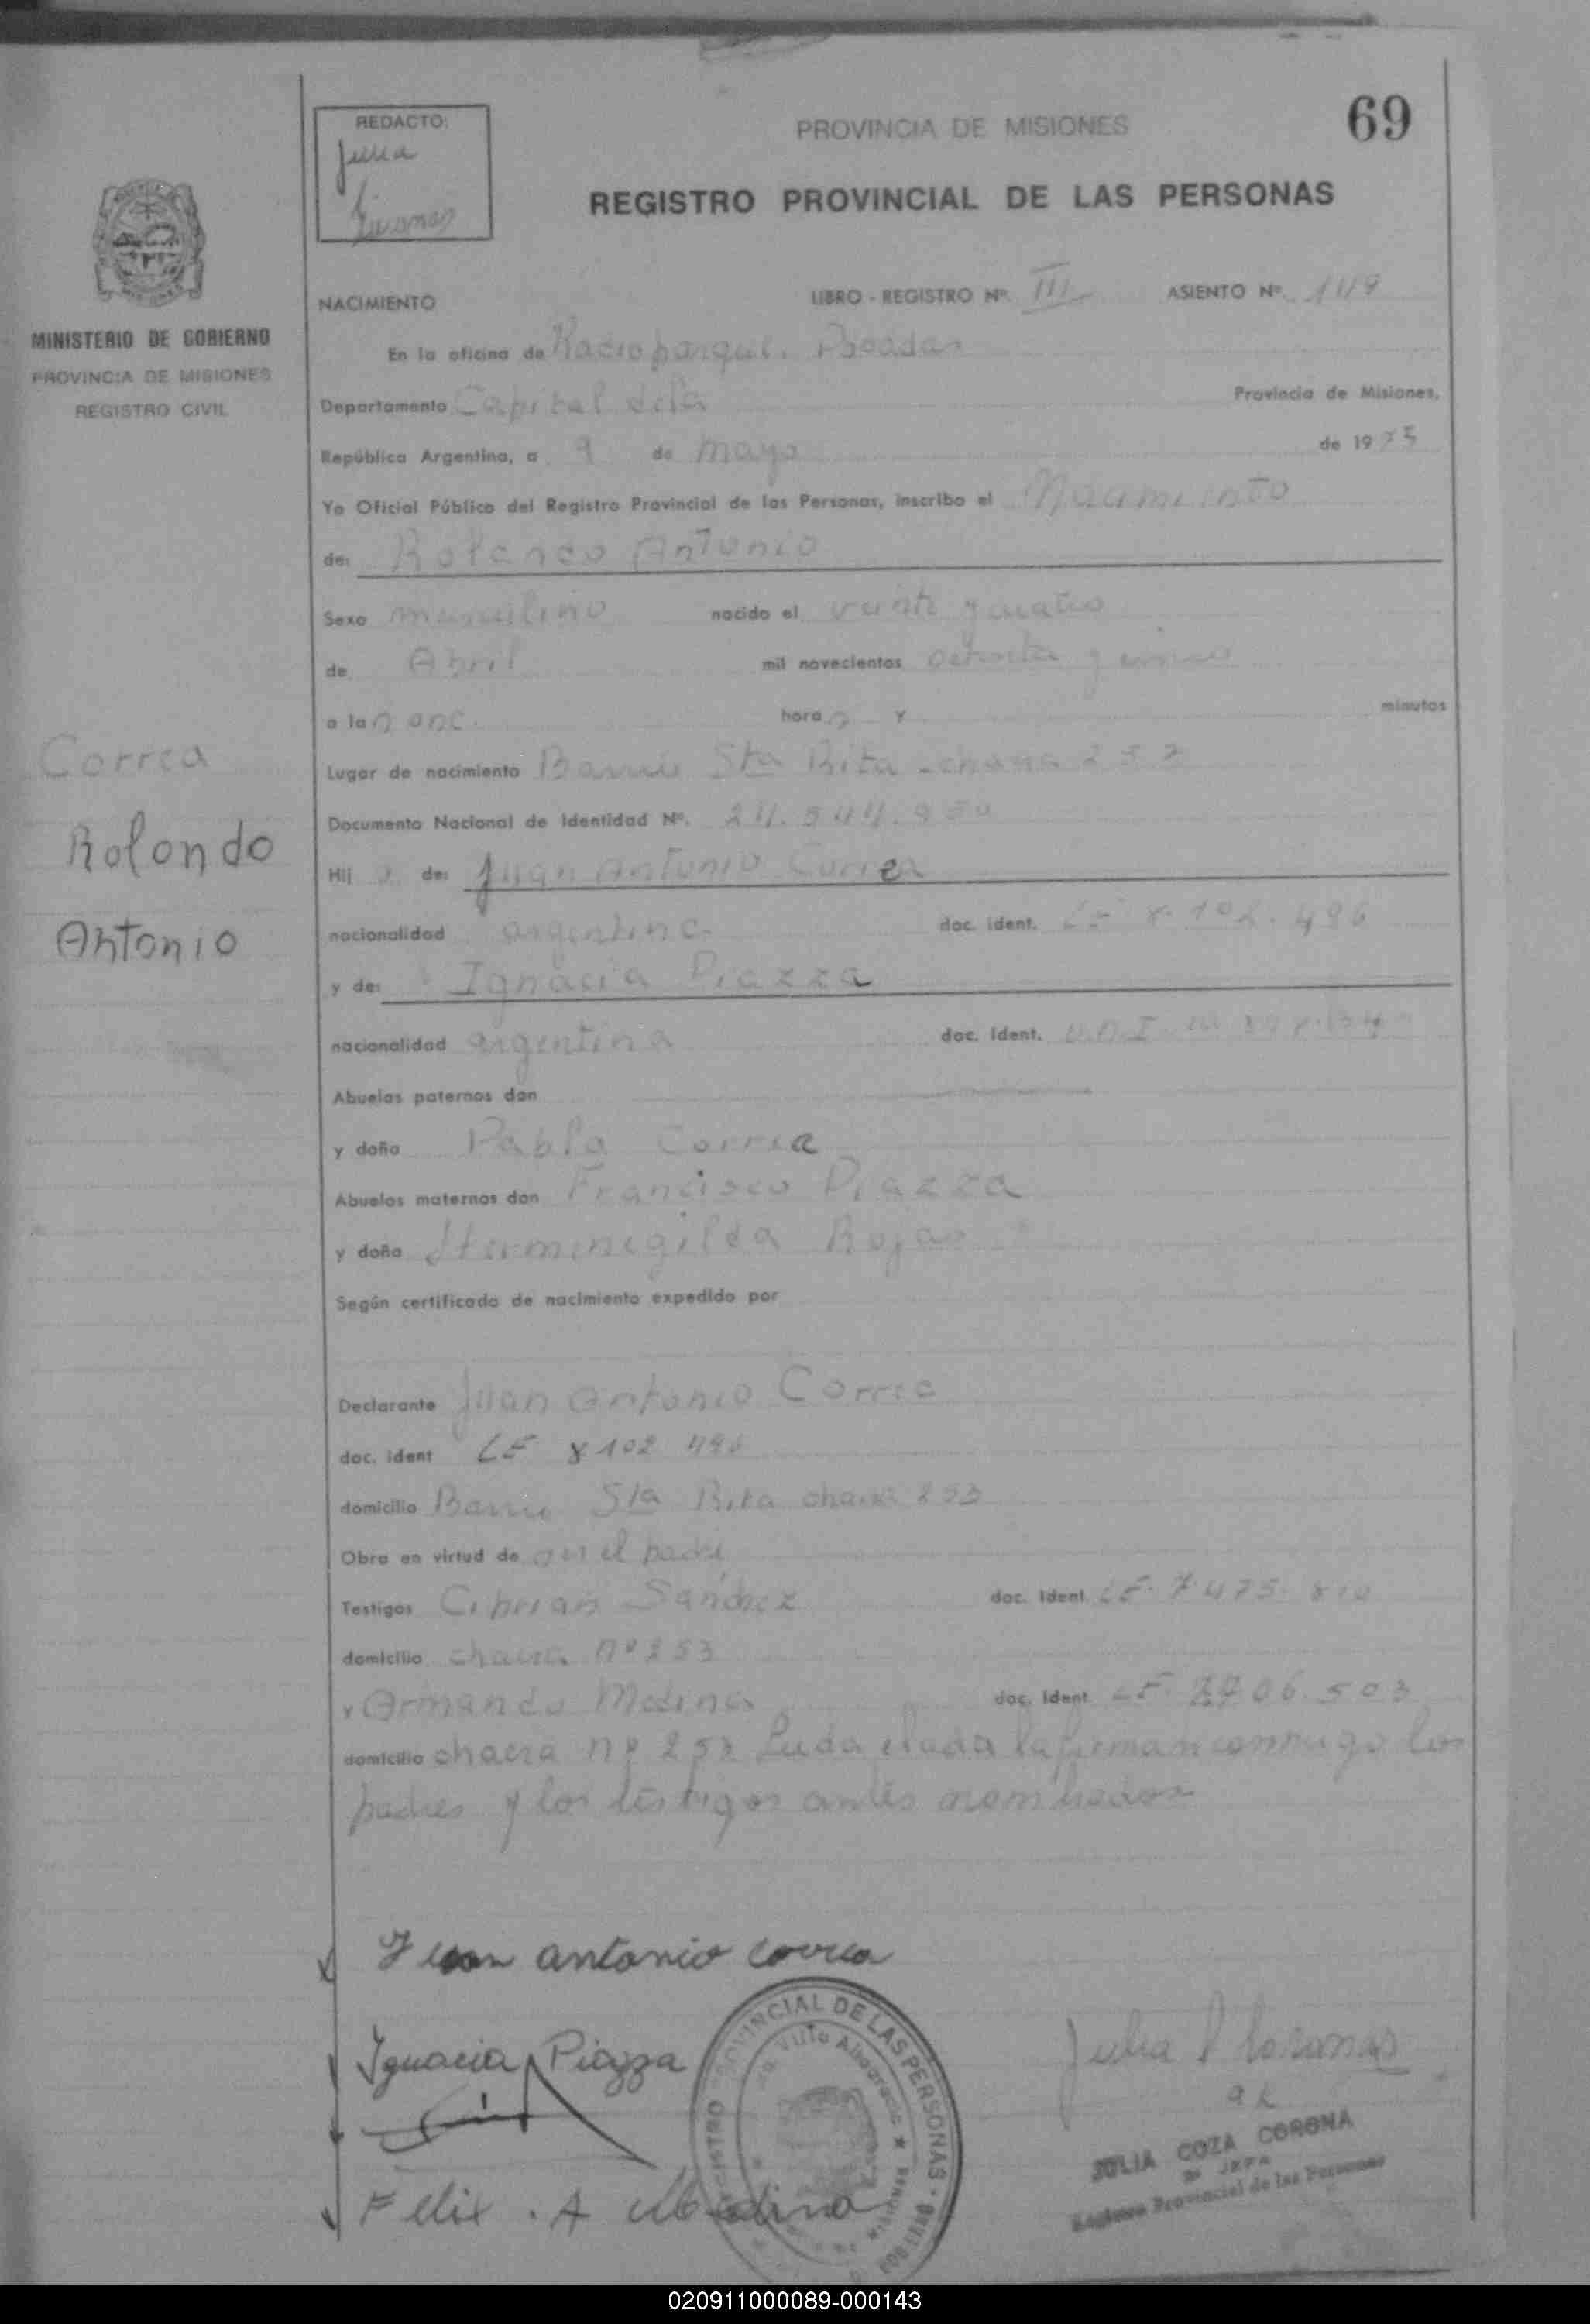 69
REDACTO:
Julia
PROVINCIA DE MISIONES
REGISTRO PROVINCIAL DE LAS PERSONAS
MINISTERIO DE GOBIERNO
PROVINCIA DE MISIONES
REGISTRO CIVIL
NACIMIENTO
LIBRO - REGISTRO Nº. III
ASIENTO Nº.
En la oficina de Posadas
Departamento Capital Provincia de Misiones,
República Argentina, a 9 de mayo de 19
Yo Oficial Público del Registro Provincial de las Personas, inscribo el Nacimiento
de: Rolando Antonio
Sexo masculino nacido el veinte y cuatro
de Abril mil novecientos
a la s once hora s y minutos
Correa
Rolando
Antonio
Lugar de nacimiento Barrio Sta Rita - chacra
Documento Nacional de Identidad Nº. 24.544.950
Hij o de: Juan Antonio Correa
nacionalidad argentina doc. ident. LE 8.102.496
y de: Ignacia Piazza
nacionalidad argentina doc. ident.
Abuelos paternos don
y doña Pabla Correa
Abuelos maternos don Francisco Piazza
y doña Herminigilda Rojas
Según certificado de nacimiento expedido por
Declarante Juan Antonio Correa
doc. ident LE 8 102 496
domicilio Barrio Sta Rita chacra 253
Obra en virtud de ser el padre
Testigos Ciprian Sanchez doc. ident. LE. 7.475. 810
domicilio chacra nº 253
y Armando Medina doc. ident. LE. 06.503
domicilio chacra nº Leida el acta la firman conmigo los
padres y los testigos antes nombrados
Juan antonio correa
Ignacia Piazza
Felix . A Medina
PROVINCIAL DE LAS PERSONAS
Julia
JULIA COZA CORONA
JEFA
Registro Provincial de las Personas
020911000089-000143